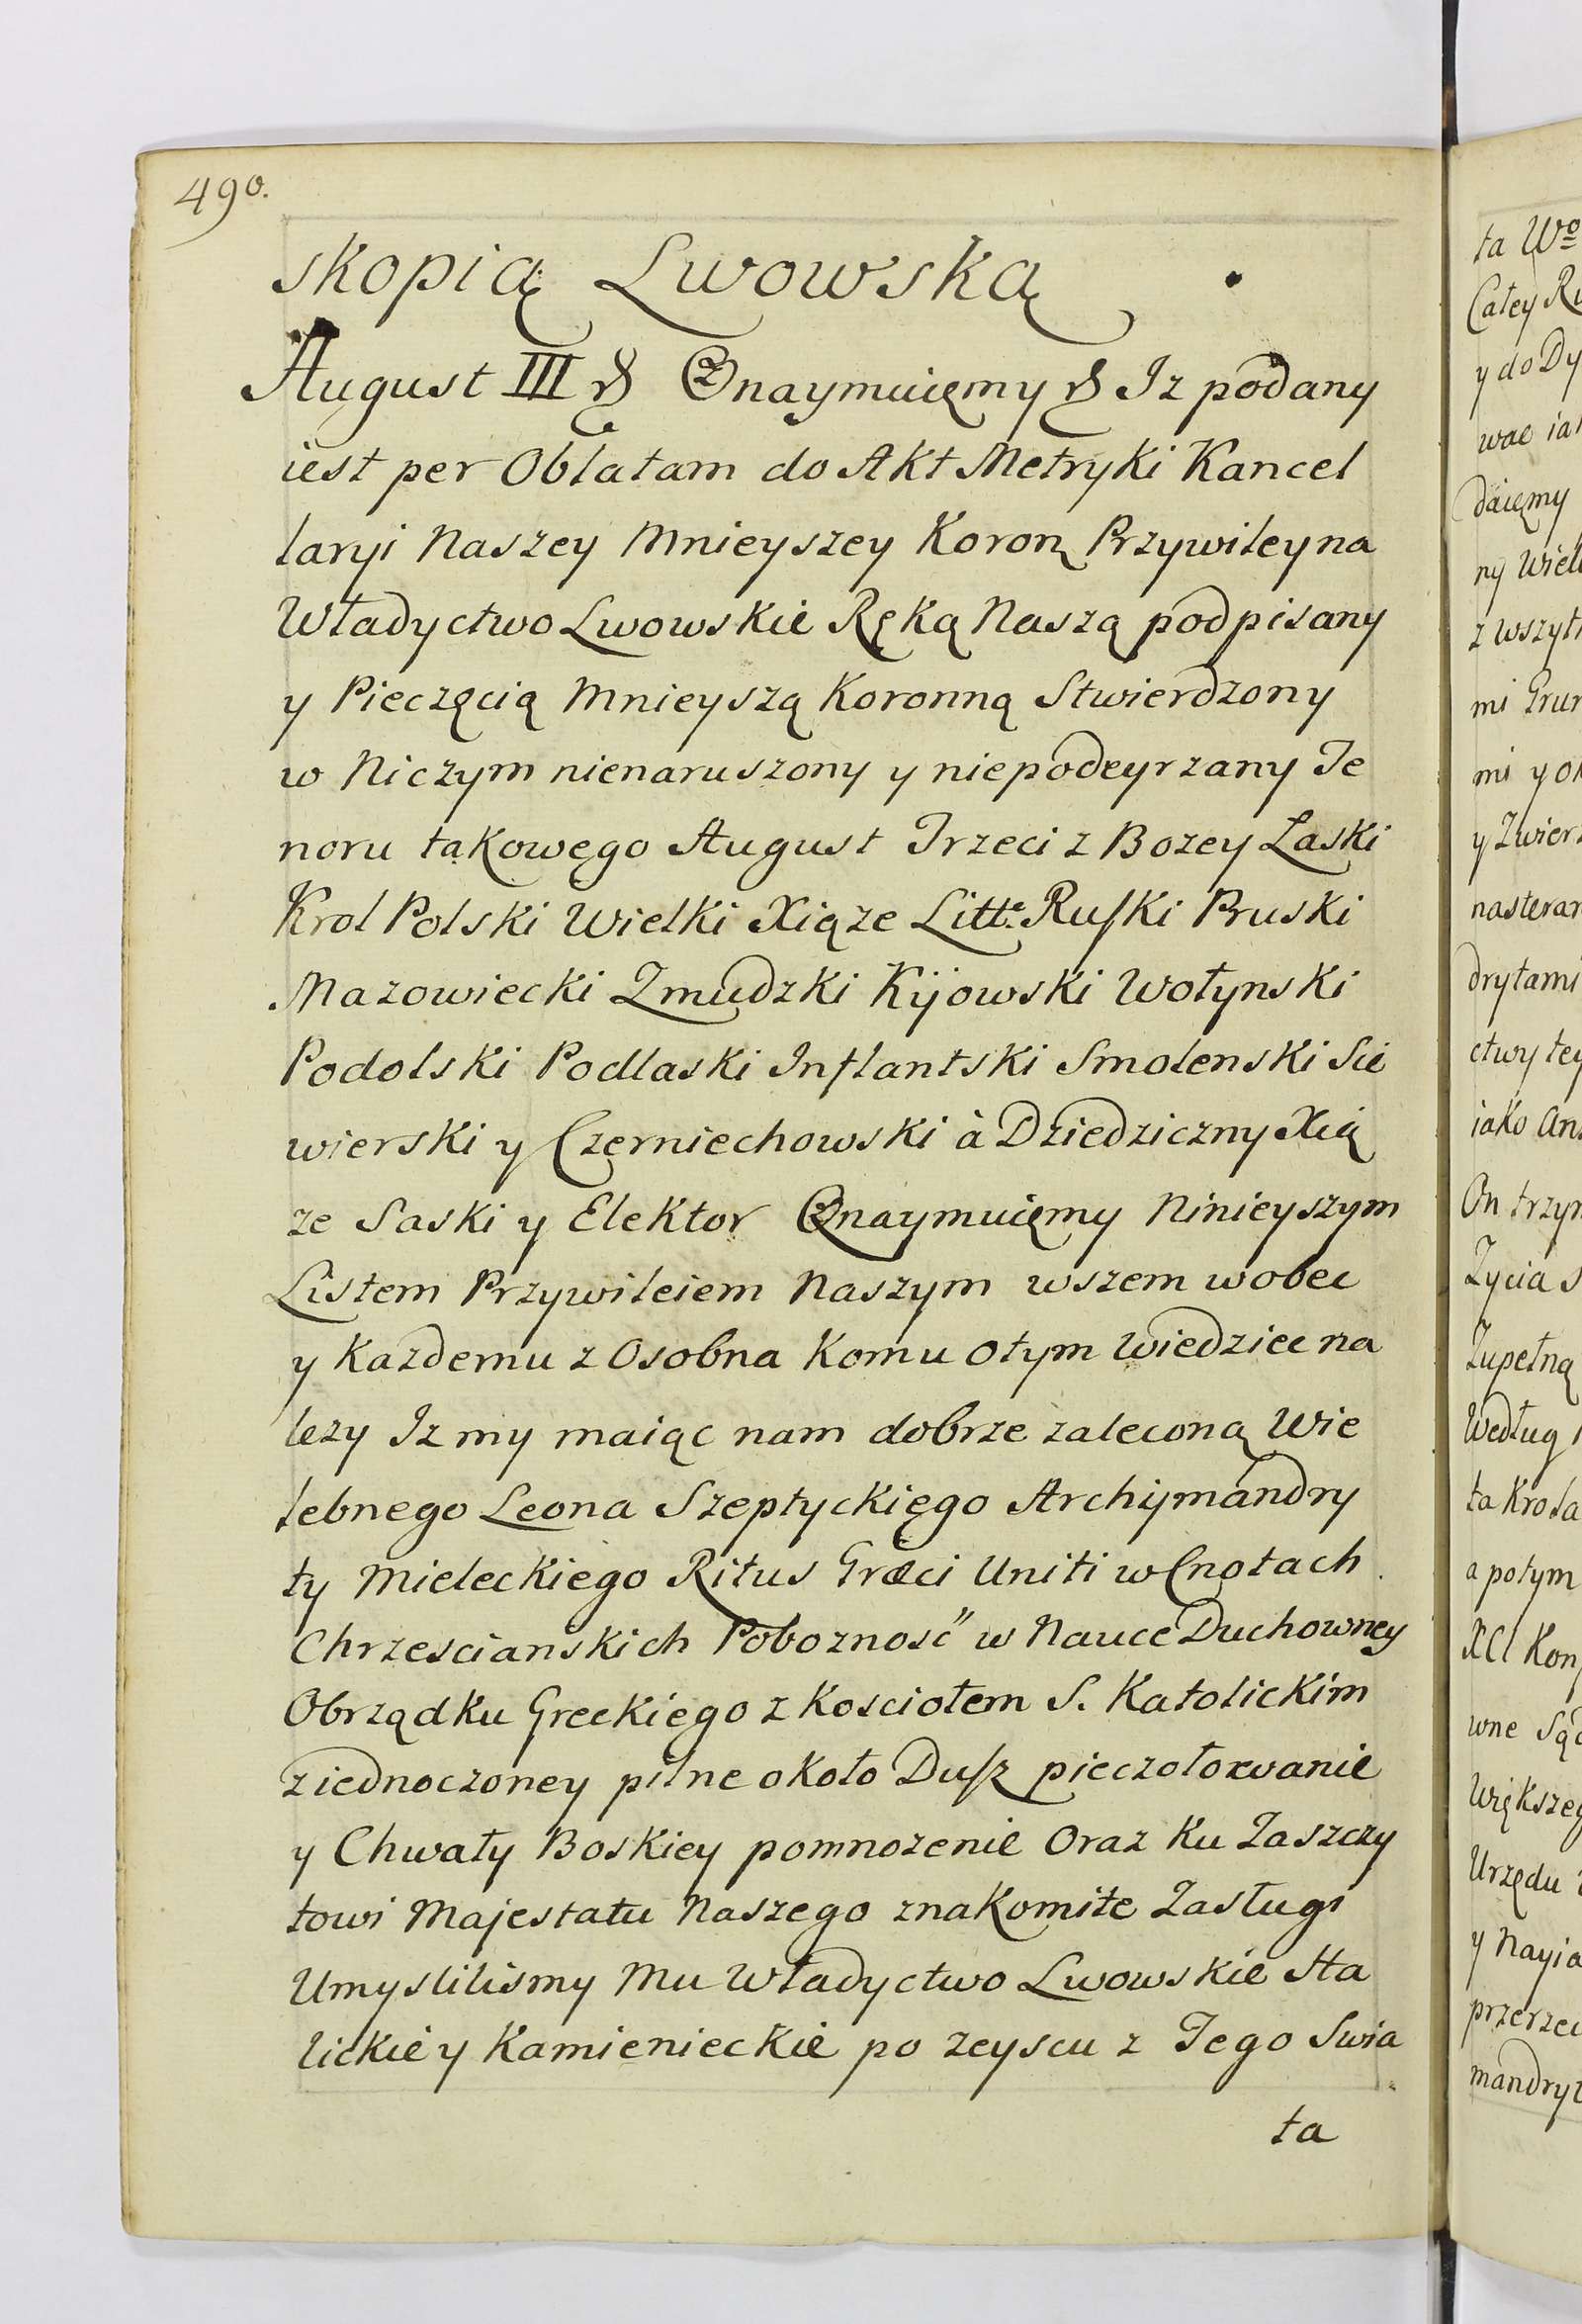 490.
skopią Lwowską
August III & Oznaymuięmy & Iz podany
iest per Oblatam do Akt Metryki Kancel
laryi Naszey Mnieyszey Koron Przywiley na
Władyctwo Lwowskie Ręką Naszą podpisany
y Pieczęcią Mnieyszą Koronną Stwierdzony
w Niczym nienaruszony y niepodeyrzany Te
noru takowego August Trzeci z Bozey Laski
Krol Polski Wielki Xiąze Litt: Ruski Pruski
Mazowiecki Zmudzki Kijowski Wołynski
Podolski Podlaski Inflantski Smolenski Sie
wierski y Czerniechowski à Dziedziczny Xią
ze Saski y Elektor Oznaymuięmy Ninieyszym
Listem Przywileiem Naszym wszem wobec
y Kazdemu z Osobna Komu otym Wiedziec na
lezy Iz my maiąc nam dobrze zaleconą Wie
lebnego Leona Szeptyckięgo Archymandry
ty Mieleckiego Ritus Græci Uniti w Cnotach
Chrzescianskich Poboznosć w Nauce Duchowney
Obrządku Greckięgo z Kosciołem S. Katolickim
ziednoczoney pilne około Dusz pieczołowanie
y Chwały Boskiey pomnozenie Oraz Ku Zaszczy
towi Majestatu Naszego znakomite Zasługi
Umyslilismy Mu Władyctwo Lwowskie Ha
lickie y Kamienieckie po zeyscu z Tego Swia
ta
ta Wo
Całey Ru
y do Dy
wac iak
daięmy
ny Wiel
z wszyt
mi Grun
mi y
y Zwier
nasterar
drytami
ctwy tey
iako
On trzym
Zycia s
Zupełną
Według
ta Krola
a potym
XCI Kon
wne Są
Większey
Urzędu
y Nayia
przerzec
mandryt